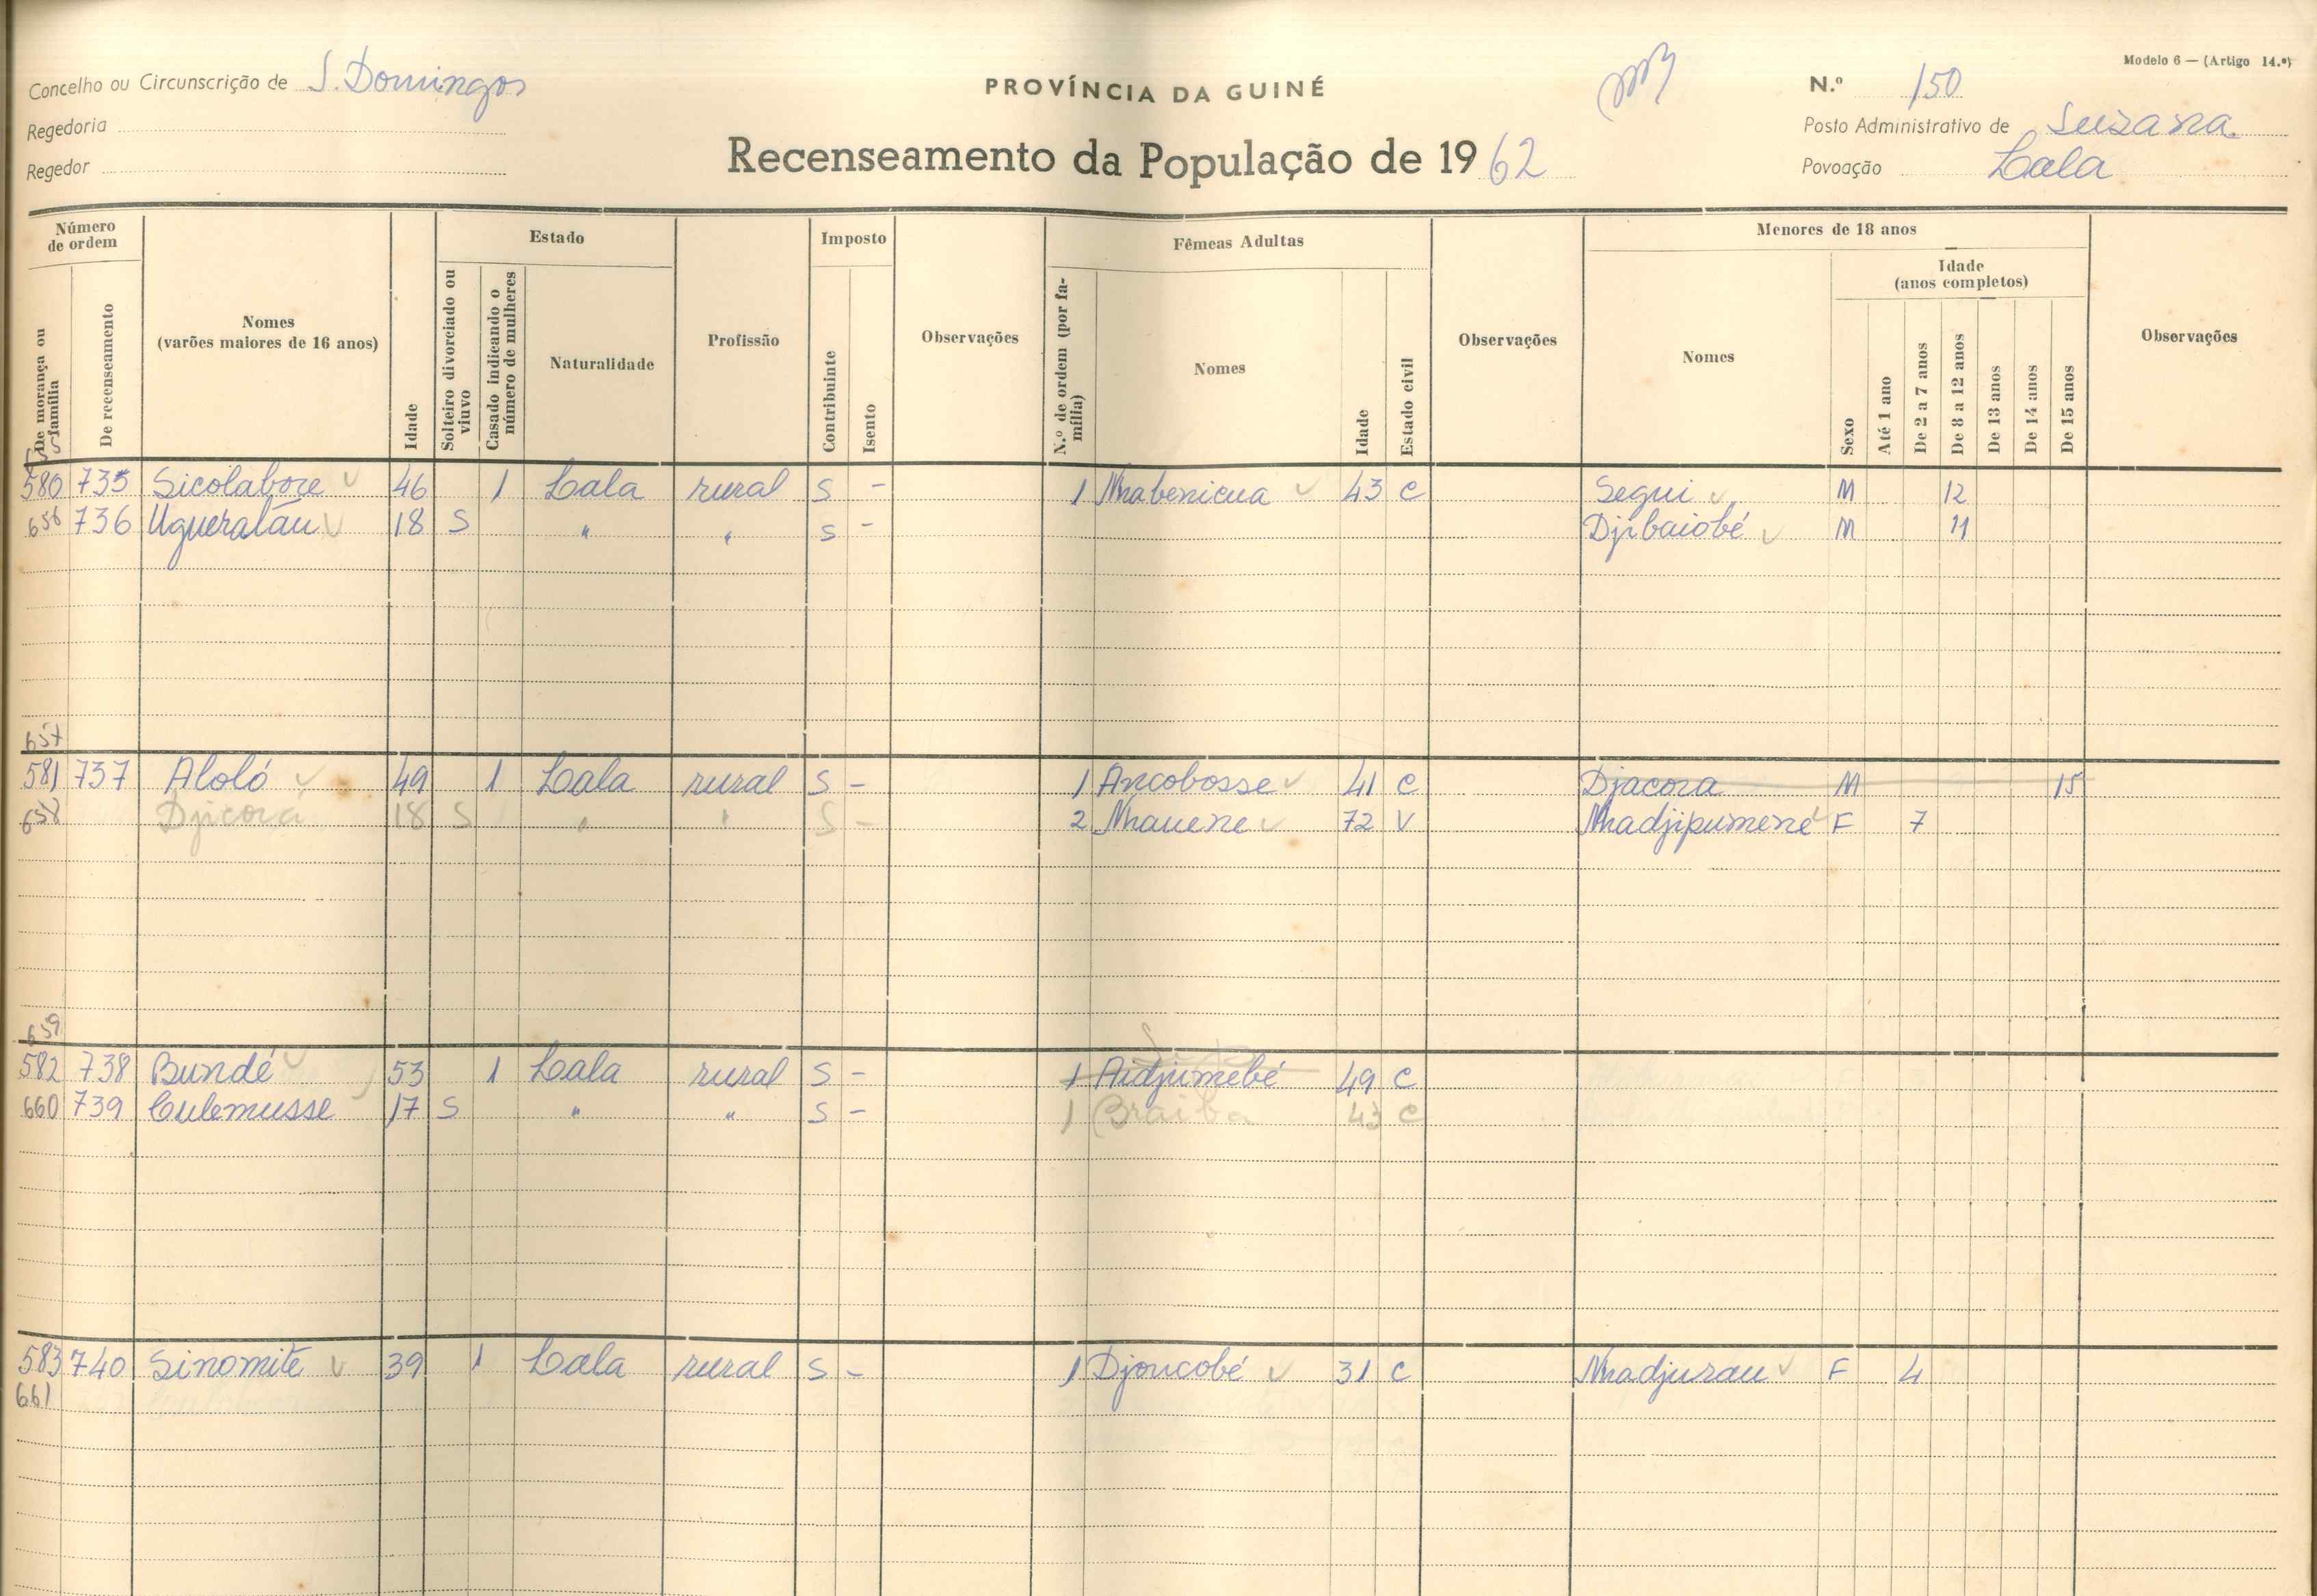 Modelo 6 — (Artigo 14.º)
Concelho ou Circunscrição de S. Domingos
PROVÍNCIA DA GUINÉ
N.º 150
Regedoria
Posto Administrativo de Suzana
Regedor
Recenseamento da População de 1962
Povoação Lala
Número de ordem
De morança ou família
De recenseamento
Nomes (varões maiores de 16 anos)
Idade
Estado
Solteiro divorciado ou viuvo
Casado indicando o número de mulheres
Naturalidade
Profissão
Imposto
Contribuinte
Isento
Observações
Fêmeas Adultas
N.º de ordem (por família)
Nomes
Idade
Estado civil
Observações
Menores de 18 anos
Nomes
Sexo
Idade (anos completos)
Até 1 ano
De 2 a 7 anos
De 8 a 12 anos
De 13 anos
De 14 anos
De 15 anos
Observações
580 735 Sicolabore 46 1 Lala rural S - 1 Nhabenicua 43 C Segui M 12
656 736 Ugueralau 18 S " " S - Djibaiobé M 11
657
581 737 Aloló 49 1 Lala rural S - 1 Ancobosse 41 C Djacora M 15
658 Djicora 18 S " " S - 2 Nhauene 72 V Nhadjipumené F 7
659
582 738 Bundé 53 1 Lala rural S - 1 Aidjumebé 49 C
660 739 Culemusse 17 S " " S - 1 Braiba 43 C
583 740 Sinomite 39 1 Lala rural S - 1 Djoucobé 31 C Nhadjurau F 4
661